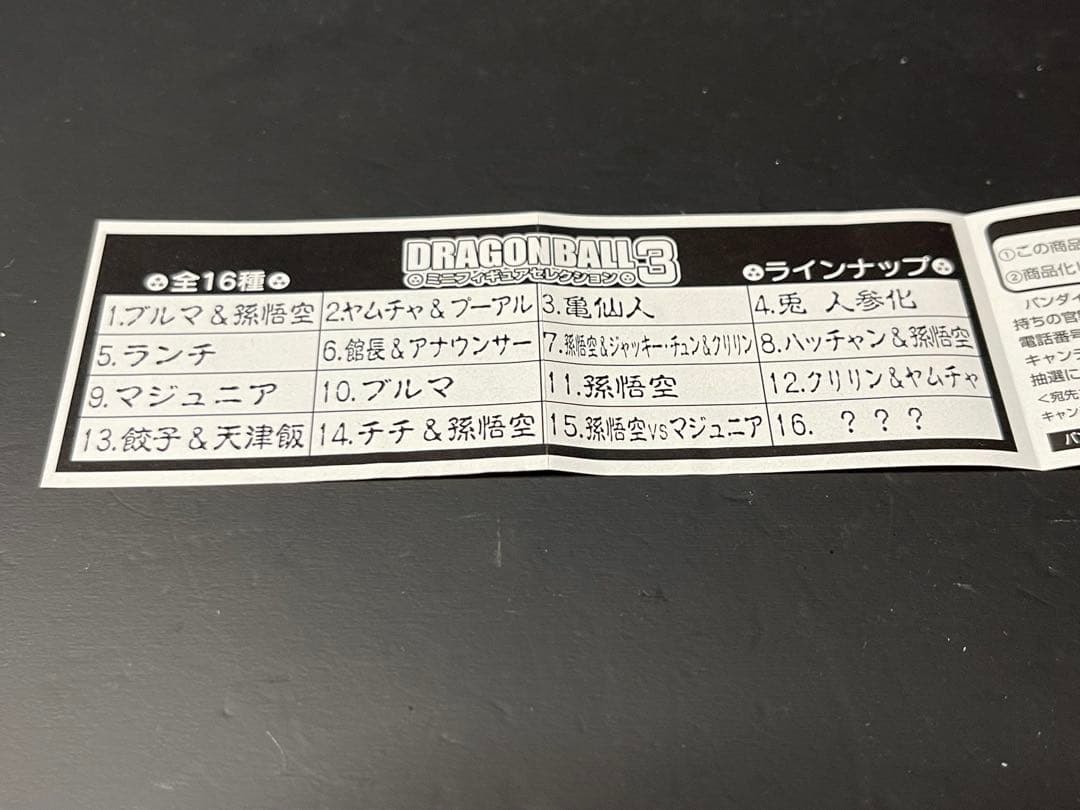 DRAGONBALL3
ミニフィギュアセレクション
全16種
ラインナップ
1.ブルマ&孫悟空
2.ヤムチャ&プーアル
3.亀仙人
4.兎 人参化
5.ランチ
6.館長&アナウンサー
7.孫悟空&ジャッキー・チュン&クリリン
8.ハッチャン&孫悟空
9.マジュニア
10.ブルマ
11.孫悟空
12.クリリン&ヤムチャ
13.餃子&天津飯
14.チチ&孫悟空
15.孫悟空vsマジュニア
16. ？？？
①この商品
②商品化
バンダイ
持ちの官
電話番号
キャンデ
抽選に
<宛先
キャン